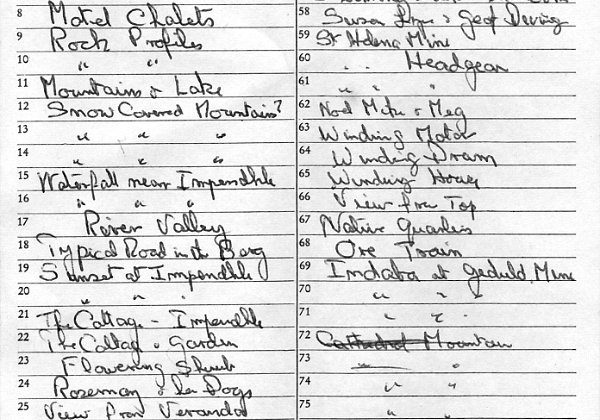 8 Motel Chalets
9 Rock Profiles
10 " "
11 Mountains & Lake
12 Snow Covered Mountains?
13 " " "
14 " " "
15 Waterfall near Impendhle
16 " " "
17 River Valley
18 Typical Road in the Berg
19 Sunset at Impendhle
20 " " "
21 The Cottage - Impendhle
22 The Cottage & Garden
23 Flowering Shrub
24 Rosemary & her Dogs
25 View from Verandah
58 Susan & Geof
59 St Helena Mine
60 " " Headgear
61 " " "
62 Noel Mike & Meg
63 Winding Motor
64 Winding Drum
65 Winding House
66 View from Top
67 Native Quarters
68 Ore Train
69 Indaba at Geduld Mine
70 " " "
71 " " "
72 Cathedral Mountain
73 "
74 " "
75 " "